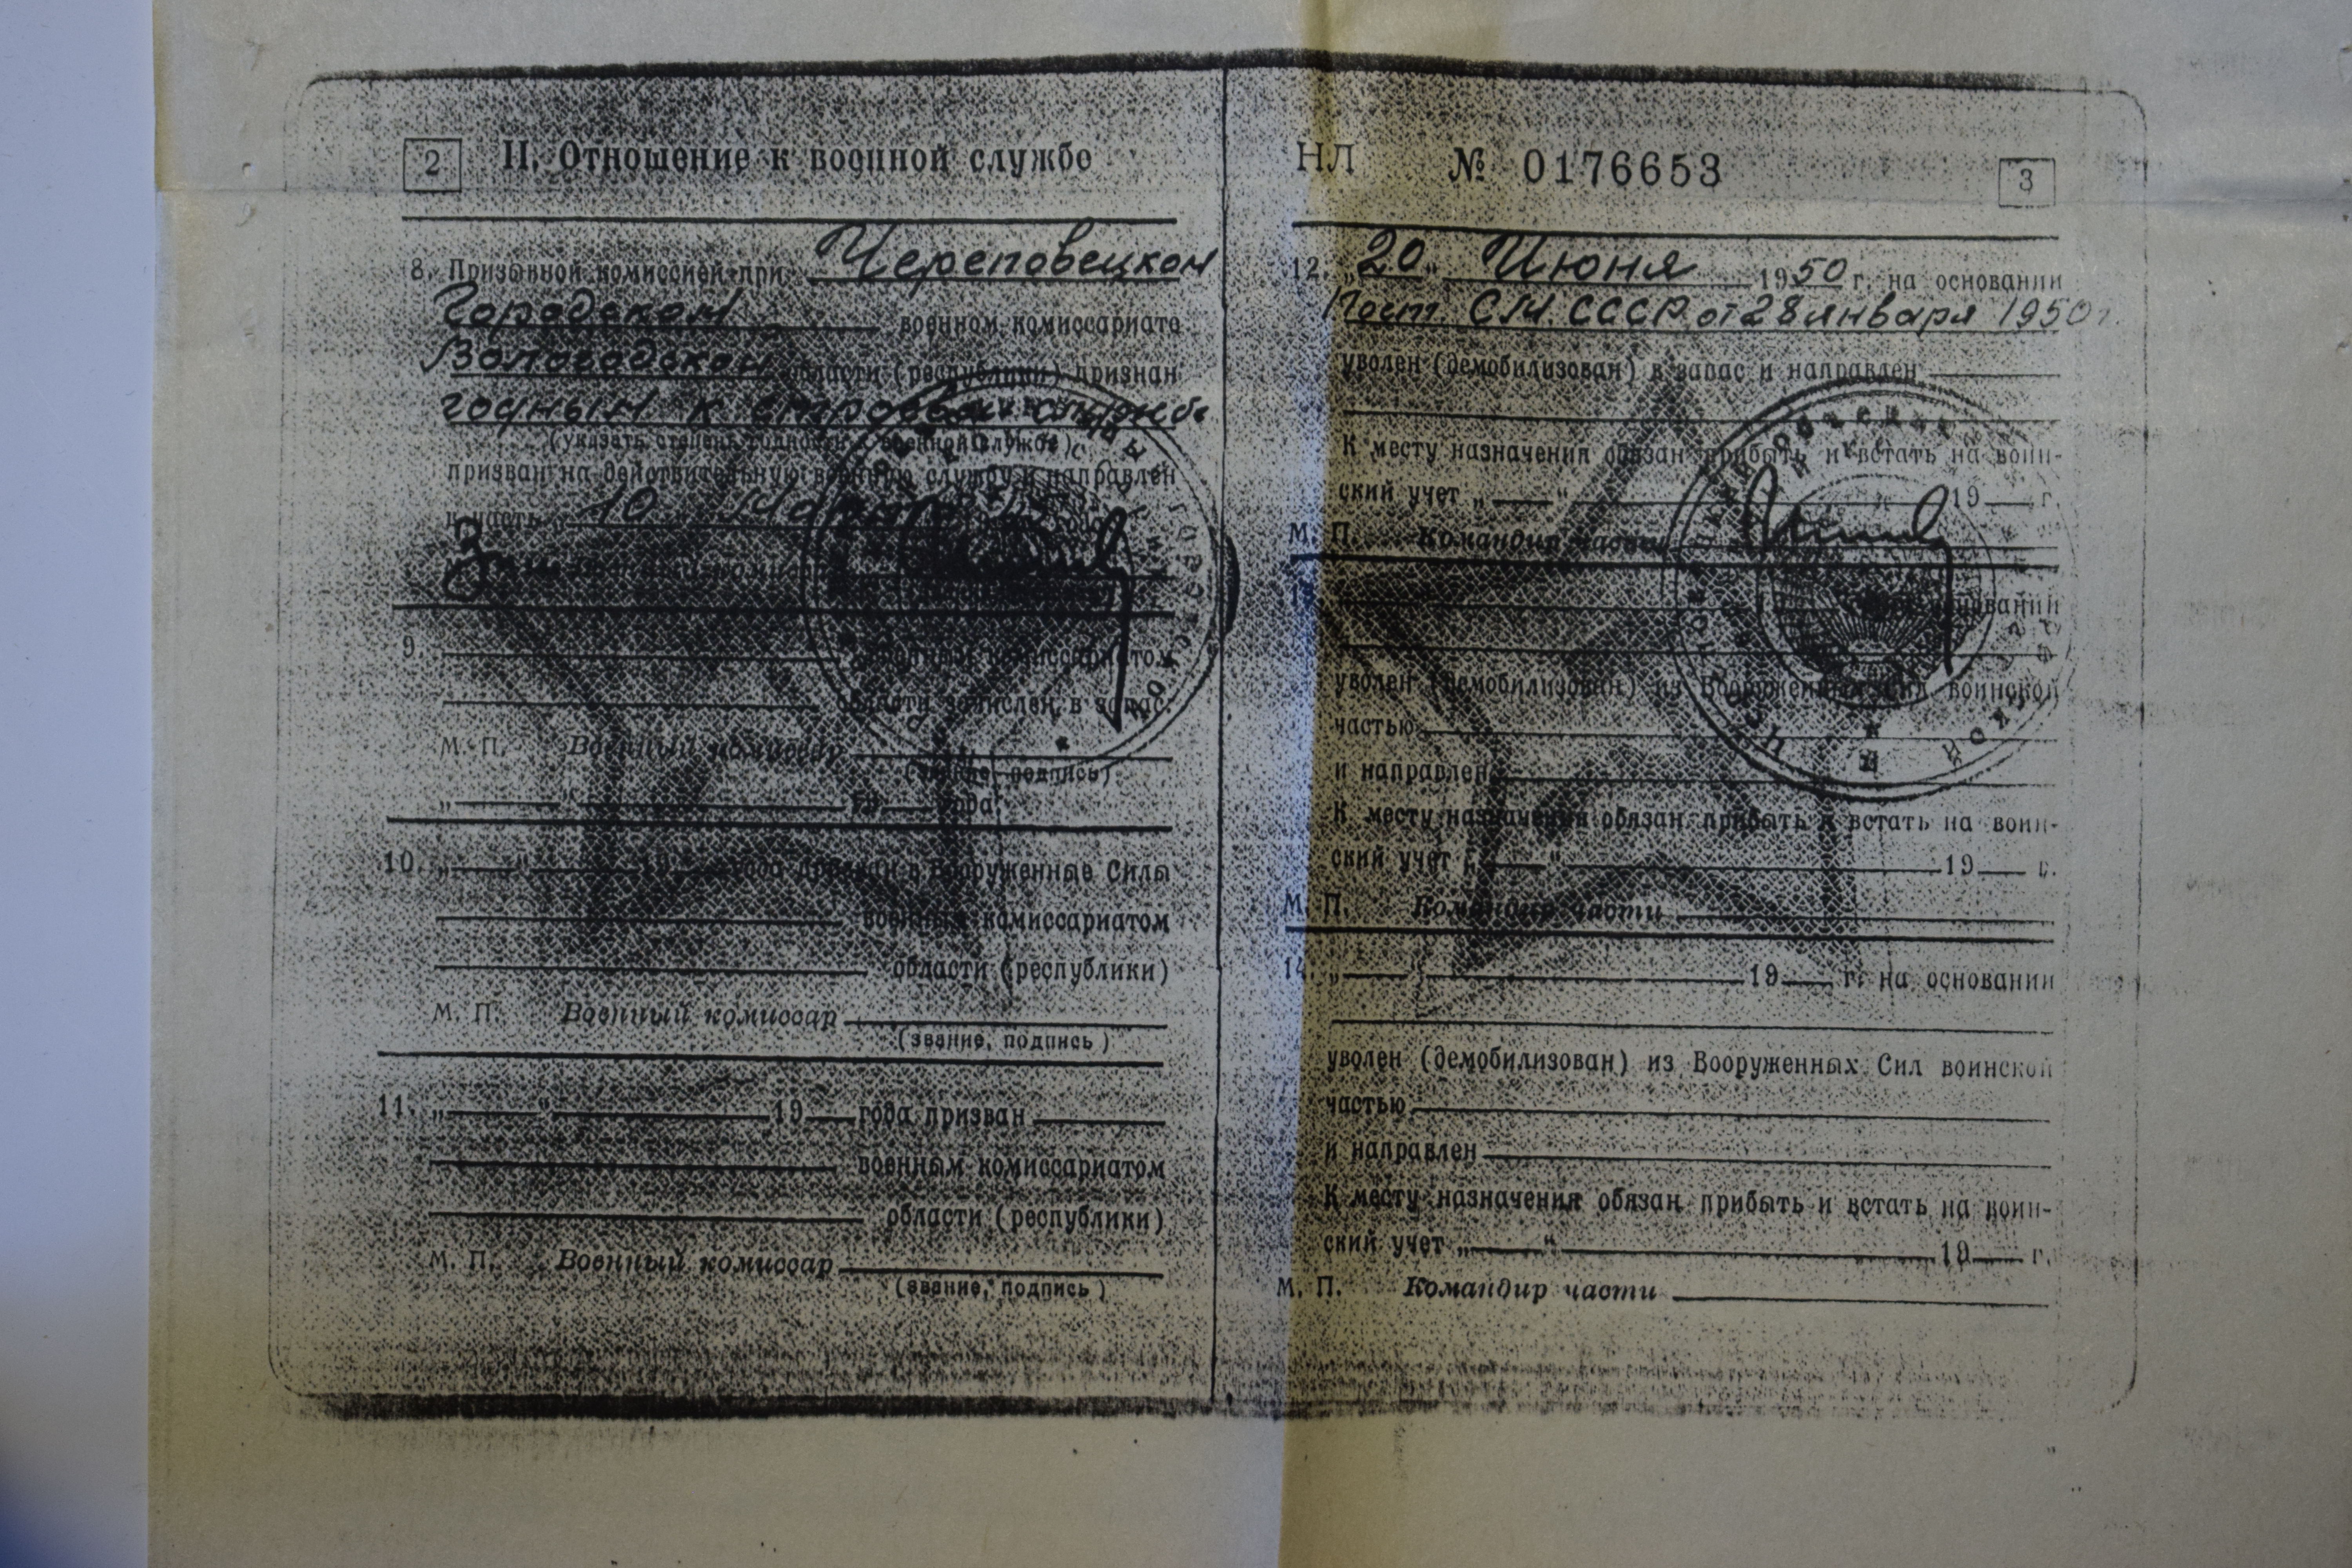 2 II. Отношение к военной службе
8. Призывной комиссией при Череповецком
Городском военном комиссариате
Вологодской области (республики) признан
годным к строевой службе
(указать степень годности к военной службе)
призван на действительную военную службу и направлен
в часть „10
9.
военным комиссариатом
области зачислен в запас.
М. П. Военный комиссар
(звание, подпись)
„ “ 19 года
10. „ “ 19 года призван в Вооруженные Силы
военным комиссариатом
области (республики)
М. П. Военный комиссар
(звание, подпись)
11. „ “ 19 года призван
военным комиссариатом
области (республики)
М. П. Военный комиссар
(звание, подпись)
НЛ № 0176653 3
12. „20“ Июня 1950 г. на основании
Пост. СМ. СССР от 28 января 1950 г.
уволен (демобилизован) в запас и направлен
К месту назначения обязан прибыть и встать на воин-
ский учет „ “ 19 г.
М. П. Командир части
основании
уволен (демобилизован) из Вооруженных Сил воинской
частью
и направлен
К месту назначения обязан прибыть и встать на воин-
ский учет „ “ 19 г.
М. П. Командир части
14. „ “ 19 г. на основании
уволен (демобилизован) из Вооруженных Сил воинской
частью
и направлен
К месту назначения обязан прибыть и встать на воин-
ский учет „ “ 19 г.
М. П. Командир части